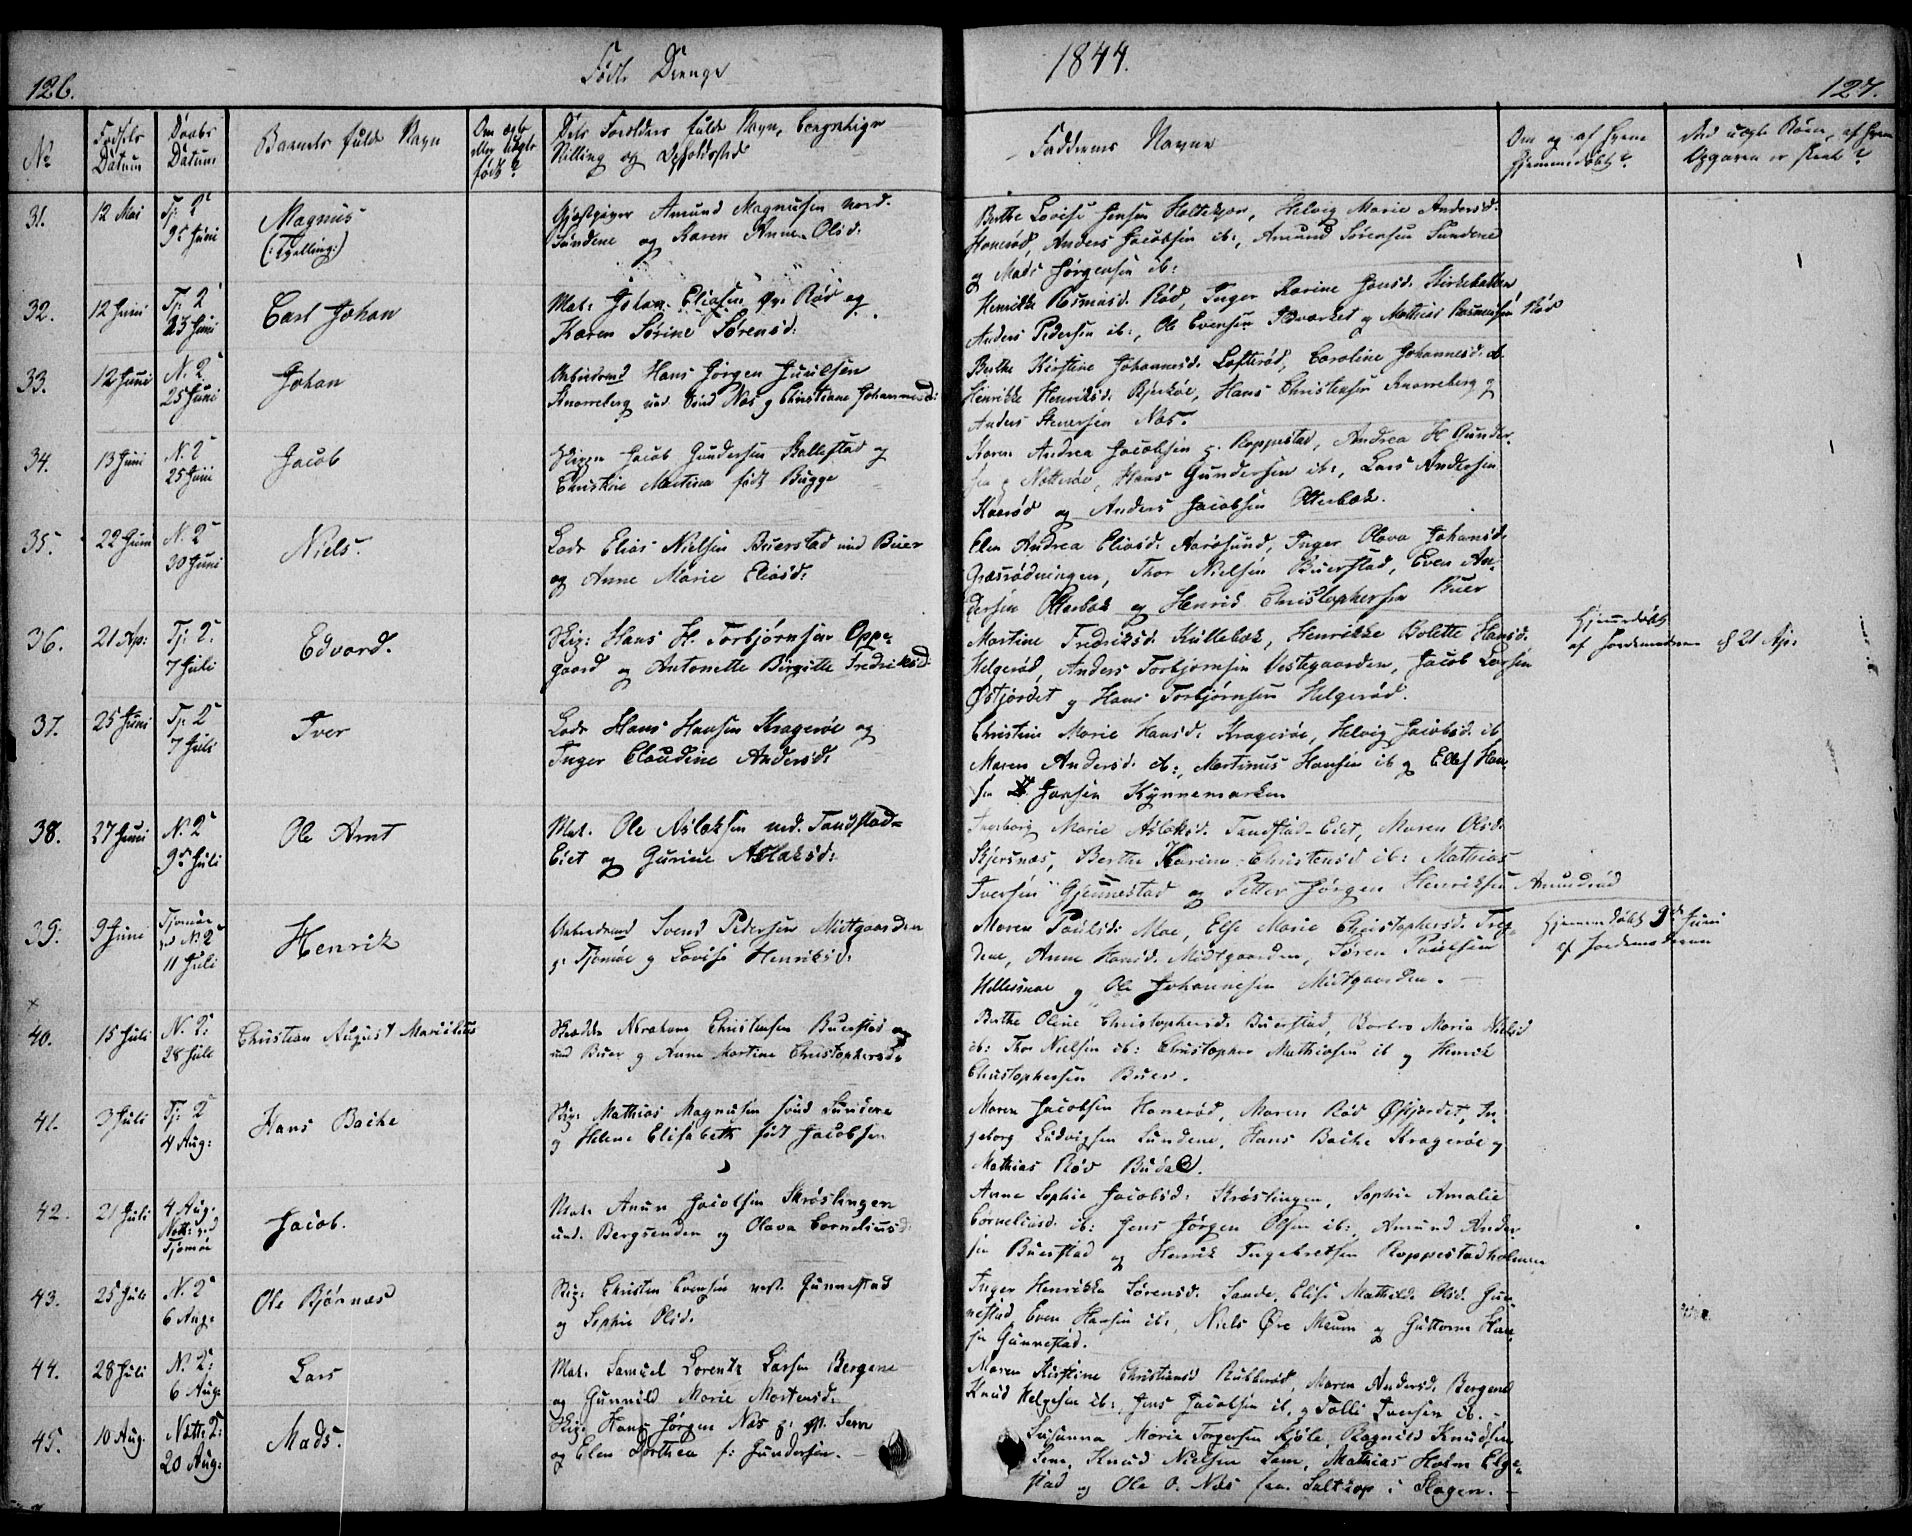 126.
Fødte Drenge
1844.
127.
No
Fødsels Datum
Daabs Datum
Barnets fulde Navn
Om ægte eller uægte født?
Dets Forældres fulde Navn, borgerlige
Stilling og Opholdssted
Faddernes Navne
Om og af hvem hjemmedøbt?
31.
12 Mai
Tj: 2
9de Juni
Magnus
(: Tvilling:)
Gjæstgiver Amund Magnusen nord.
Sundene og Karen Anne Olsd:
Berthe Lovise Jensen Holtekjær, Helvig Marie Andersd.
Honerød, Anders Jacobsen ib:, Amund Sørensen Sundene
og Mads Jørgensen ib:
32.
12 Juni
Tj: 2
23 Juni
Carl Johan
Mat: Johan Eliasen Rød og
Karen Sørine Sørensd:
Henrikke Rasmusd. Rød, Inger Karine Jonsd.
Anders Pedersen ib:, Ole Evensen og Mathias Rasmusen Rød
33.
12 Juni
N. 2
25 Juni
Johan
Arbeidsmd Hans Jørgen Juulsen
Knarreberg und. Næs og Christiane Johannesd:
Berthe Kirstine Johannesd. Lofterød, Caroline Johannesd. ib.
Henrikke Henriksd. Bjerkøe, Hans Christensen Knarreberg og
Anders Næs.
34.
13 Juni
N. 2
25 Juni
Jacob
Jacob Gundersen Ballestad og
Christine Martine født Bugge
Karen Andrea Jacobsen g. Roppestad, Andrea H Gunder-
sen g. Nøtterøe, Hans Gundersen ib:, Lars Andersen
Kaarød og Anders Jacobsen Otterbæk.
35.
22 Juni
N. 2
30 Juni
Niels.
Lods Elias Nielsen Buerstad und Buer
og Anne Marie Eliasd:
Elen Andrea Eliasd. Aarøsund, Inger Olava Johansd.
Græsrødningen, Thor Nielsen Buerstad, Even An-
dersen Otterbæk og Henrik Christophersen Buer
36.
21 Ap:
Tj: 2.
7 Juli
Edvard.
Skip: Hans H. Torbjørnsen Oppe-
gaard og Antonette Birgitte Fredriksd.
Martine Fredriksd. Kullebæk, Henrikke Bolette Hansd.
Helgerød, Anders Torbjørnsen Vestegaarden, Jacob Larsen
Østjordet og Hans Torbjørnsen Helgerød.
Hjemmedøbt
af Jordemoderen d 21 Apr.
37.
25 Juni
Tj: 2
7 Juli
Iver
Lods Hans Hansen Kragerøe og
Inger Claudine Andersd:
Christine Marie Hansd. Kragerøe, Helvig Jacobsd. ib
Maren Andersd. ib:, Martinus Hansen ib og Ellef Han-
sen Jonsen Kynnemarken
38.
27 Juni
N. 2
9de Juli
Ole Arnt
Mat. Ole Aslaksen ved. Tandstad-
Eiet og Gurine Aslaksd:
Ingeborg Marie Aslaksd. Tandstad-Eiet, Maren Olsd.
Skjersnæs, Berthe Karine Christensd ib: Mathias
Iversen Gjennestad og Petter Jørgen Henriksen Amundrød
39.
9 Juni
Tjømøe
ved N. 2
11 Juli
Henrik
Arbeidsmd Svend Pedersen Midtgaarden
g: Tjømøe og Lovise Henriksd:
Maren Paulsd: Moe, Else Marie Christophersd.
Anne Hansd. Midtgaarden, Søren Paulsen
og Ole Johannesen Midtgaarden.
Hjemmedøbt 9de Juni
af Jordemoderen
40.
15 Juli
N. 2:
28 Juli
Christian August
Skrædder Abraham Christensen Buerstad
und Buer og Anne Martine Christophersd.
Berthe Oline Christophersd. Buerstad, Barbro Maria Nielsd
ib: Thor Nielsen ib: Christopher Mathiasen ib og Henrik
Christophersen Buer.
41.
3 Juli
Tj: 2
4 Aug:
Hans Bache
Skip: Mathias Magnusen Sundene
og Helene Elisabeth født Jacobsen
Maren Jacobsen Honerød, Maren Rød Østjordet, In-
geborg Ludvigsen Sundene, Hans Bache Kragerøe og
Mathias Rød Budal.
42.
21 Juli
4 Aug.
Nøtt: ved
Tjømøe
Jacob.
Mat. Anun Jacobsen Skrøslingen
und. Bergsenden og Olava Corneliusd.
Anne Sophie Jacobsd: Skrøslingen, Sophie Amalie
Corneliusd. ib: Jens Jørgen Olsen ib:, Amund Ander-
sen Buerstad og Henrik Ingebretsen Roppestadholmen
43.
25 Juli
N. 2
6 Aug.
Ole Bjørnæs
Skip: Christen Evensen vest. Gunnestad
og Sophie Olsd.
Inger Henrikke Sørensd. Sande, Elise Mathilde Olsd. Gun-
nestad, Even Hansen ib:, Niels Øre Meum og Guttorm Han-
sen Gunnestad.
44.
28 Juli
N. 2:
6 Aug:
Lars
Mat. Samuel Lorentz Larsen Bergene
og Gunnild Marie Mortensd:
Maren Kirstine Christiansd Rubberød, Maren Andersd. Bergene
Knud Helgesen ib:, Jens Jacobsen ib. og Tolli Iversen ib.
45.
10 Aug.
Nøtt: 2:
20 Aug:
Mads.
Skip: Hans Jørgen Næs Sem
og Elen Dorthea f: Gundersen.
Susanna Marie Torgersen Kjøle, Ragnild Knudsen
Sem, Knud Nielsen Sem, Mathias Holm Elge-
stad og Ole O. Næs fra Saltkop i Slagen.